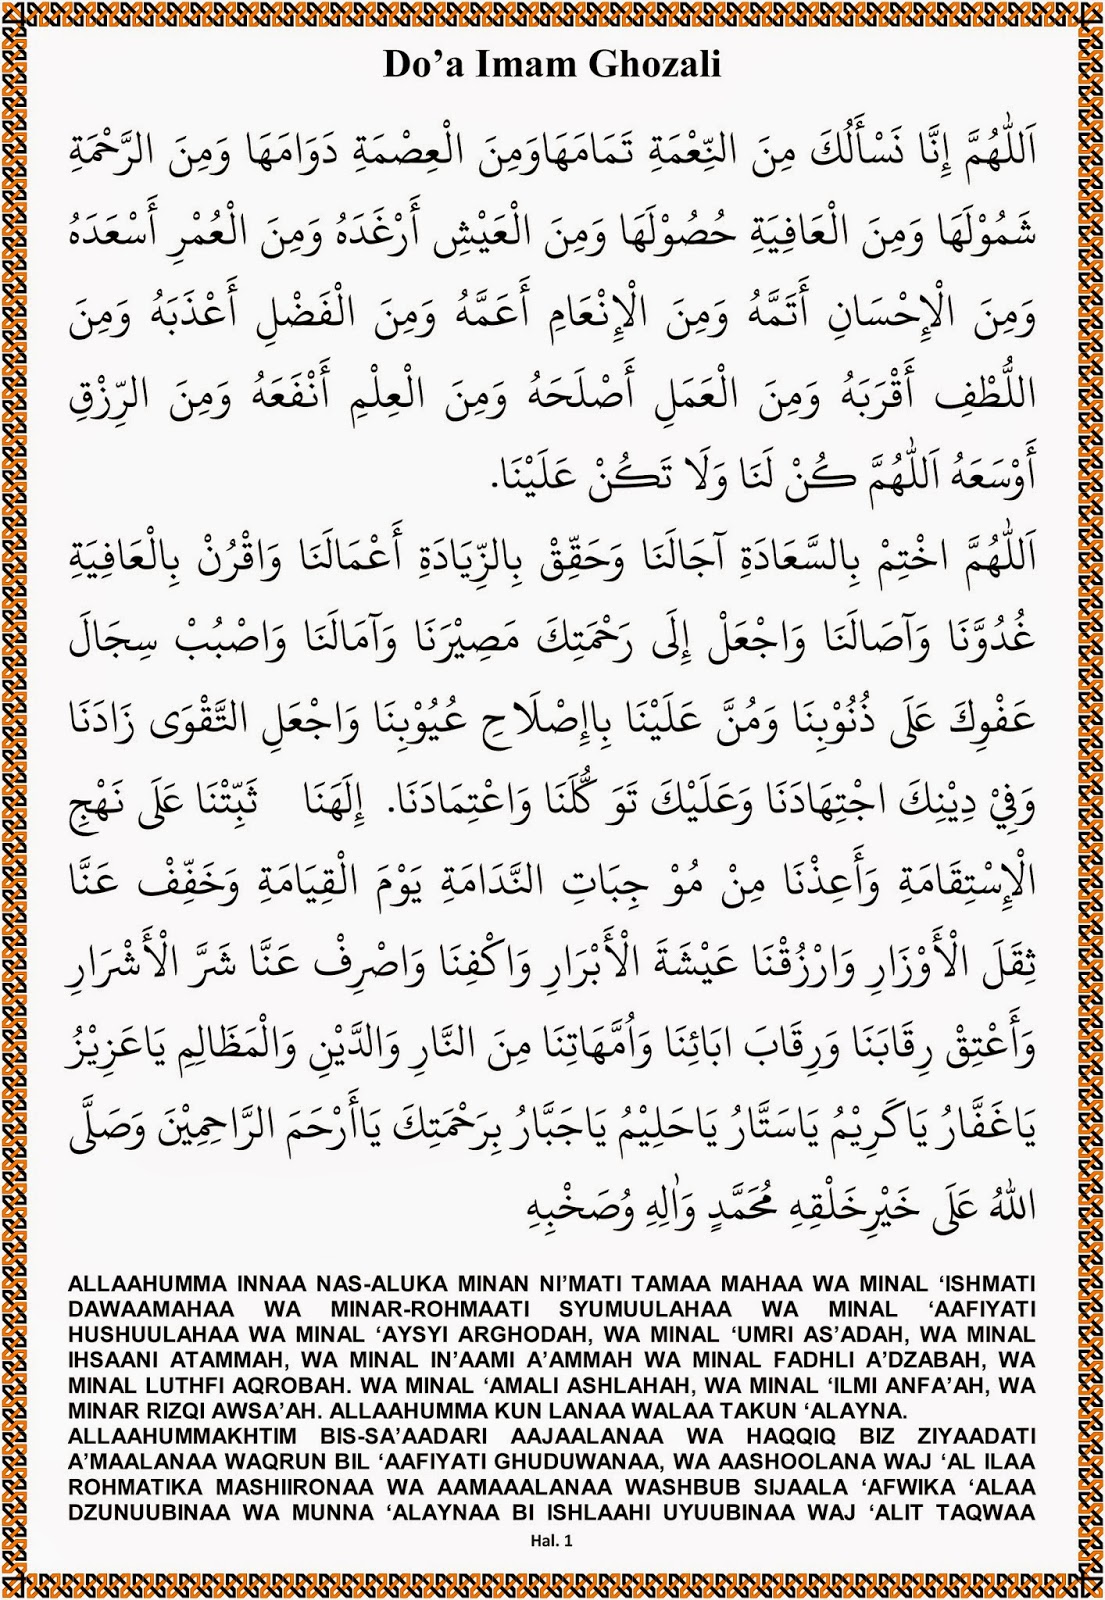 Do’a Imam Ghozali
اَللّٰهُمَّ إِنَّا نَسْأَلُكَ مِنَ النِّعْمَةِ تَمَامَهَاوَمِنَ الْعِصْمَةِ دَوَامَهَا وَمِنَ الرَّحْمَةِ
شَمُوْلَهَا وَمِنَ الْعَافِيَةِ حُصُوْلَهَا وَمِنَ الْعَيْشِ أَرْغَدَهُ وَمِنَ الْعُمْرِ أَسْعَدَهُ
وَمِنَ الْإِحْسَانِ أَتَمَّهُ وَمِنَ الْإِنْعَامِ أَعَمَّهُ وَمِنَ الْفَضْلِ أَعْذَبَهُ وَمِنَ
اللُّطْفِ أَقْرَبَهُ وَمِنَ الْعَمَلِ أَصْلَحَهُ وَمِنَ الْعِلْمِ أَنْفَعَهُ وَمِنَ الرِّزْقِ
أَوْسَعَهُ اَللّٰهُمَّ كُنْ لَنَا وَلَا تَكُنْ عَلَيْنَا.
اَللّٰهُمَّ اخْتِمْ بِالسَّعَادَةِ آجَالَنَا وَحَقِّقْ بِالزِّيَادَةِ أَعْمَالَنَا وَاقْرُنْ بِالْعَافِيَةِ
غُدُوَّنَا وَآصَالَنَا وَاجْعَلْ إِلَى رَحْمَتِكَ مَصِيْرَنَا وَآمَالَنَا وَاصْبُبْ سِجَالَ
عَفْوِكَ عَلَى ذُنُوْبِنَا وَمُنَّ عَلَيْنَا بِاِصْلَاحِ عُيُوْبِنَا وَاجْعَلِ التَّقْوَى زَادَنَا
وَفِيْ دِيْنِكَ اجْتِهَادَنَا وَعَلَيْكَ تَوَ كُّلَنَا وَاعْتِمَادَنَا. إِلَهَنَا ثَبِّتْنَا عَلَى نَهْجِ
الْإِسْتِقَامَةِ وَأَعِذْنَا مِنْ مُوْ جِبَاتِ النَّدَامَةِ يَوْمَ الْقِيَامَةِ وَخَفِّفْ عَنَّا
ثِقَلَ الْأَوْزَارِ وَارْزُقْنَا عَيْشَةَ الْأَبْرَارِ وَاكْفِنَا وَاصْرِفْ عَنَّا شَرَّ الْأَشْرَارِ
وَأَعْتِقْ رِقَابَنَا وَرِقَابَ ابَائِنَا وَاُمَّهَاتِنَا مِنَ النَّارِ وَالدَّيْنِ وَالْمَظَالِمِ يَاعَزِيْزُ
يَاغَفَّارُ يَاكَرِيْمُ يَاسَتَّارُ يَاحَلِيْمُ يَاجَبَّارُ بِرَحْمَتِكَ يَاأَرْحَمَ الرَّاحِمِيْنَ وَصَلَّى
اللهُ عَلَى خَيْرِخَلْقِهِ مُحَمَّدٍ وَاٰلِهِ وُصَخْبِهِ
ALLAAHUMMA INNAA NAS-ALUKA MINAN NI’MATI TAMAA MAHAA WA MINAL ‘ISHMATI
DAWAAMAHAA WA MINAR-ROHMAATI SYUMUULAHAA WA MINAL ‘AAFIYATI
HUSHUULAHAA WA MINAL ‘AYSYI ARGHODAH, WA MINAL ‘UMRI AS’ADAH, WA MINAL
IHSAANI ATAMMAH, WA MINAL IN’AAMI A’AMMAH WA MINAL FADHLI A’DZABAH, WA
MINAL LUTHFI AQROBAH. WA MINAL ‘AMALI ASHLAHAH, WA MINAL ‘ILMI ANFA’AH, WA
MINAR RIZQI AWSA’AH. ALLAAHUMMA KUN LANAA WALAA TAKUN ‘ALAYNA.
ALLAAHUMMAKHTIM BIS-SA’AADARI AAJAALANAA WA HAQQIQ BIZ ZIYAADATI
A’MAALANAA WAQRUN BIL ‘AAFIYATI GHUDUWANAA, WA AASHOOLANA WAJ ‘AL ILAA
ROHMATIKA MASHIIRONAA WA AAMAAALANAA WASHBUB SIJAALA ‘AFWIKA ‘ALAA
DZUNUUBINAA WA MUNNA ‘ALAYNAA BI ISHLAAHI UYUUBINAA WAJ ‘ALIT TAQWAA
Hal. 1